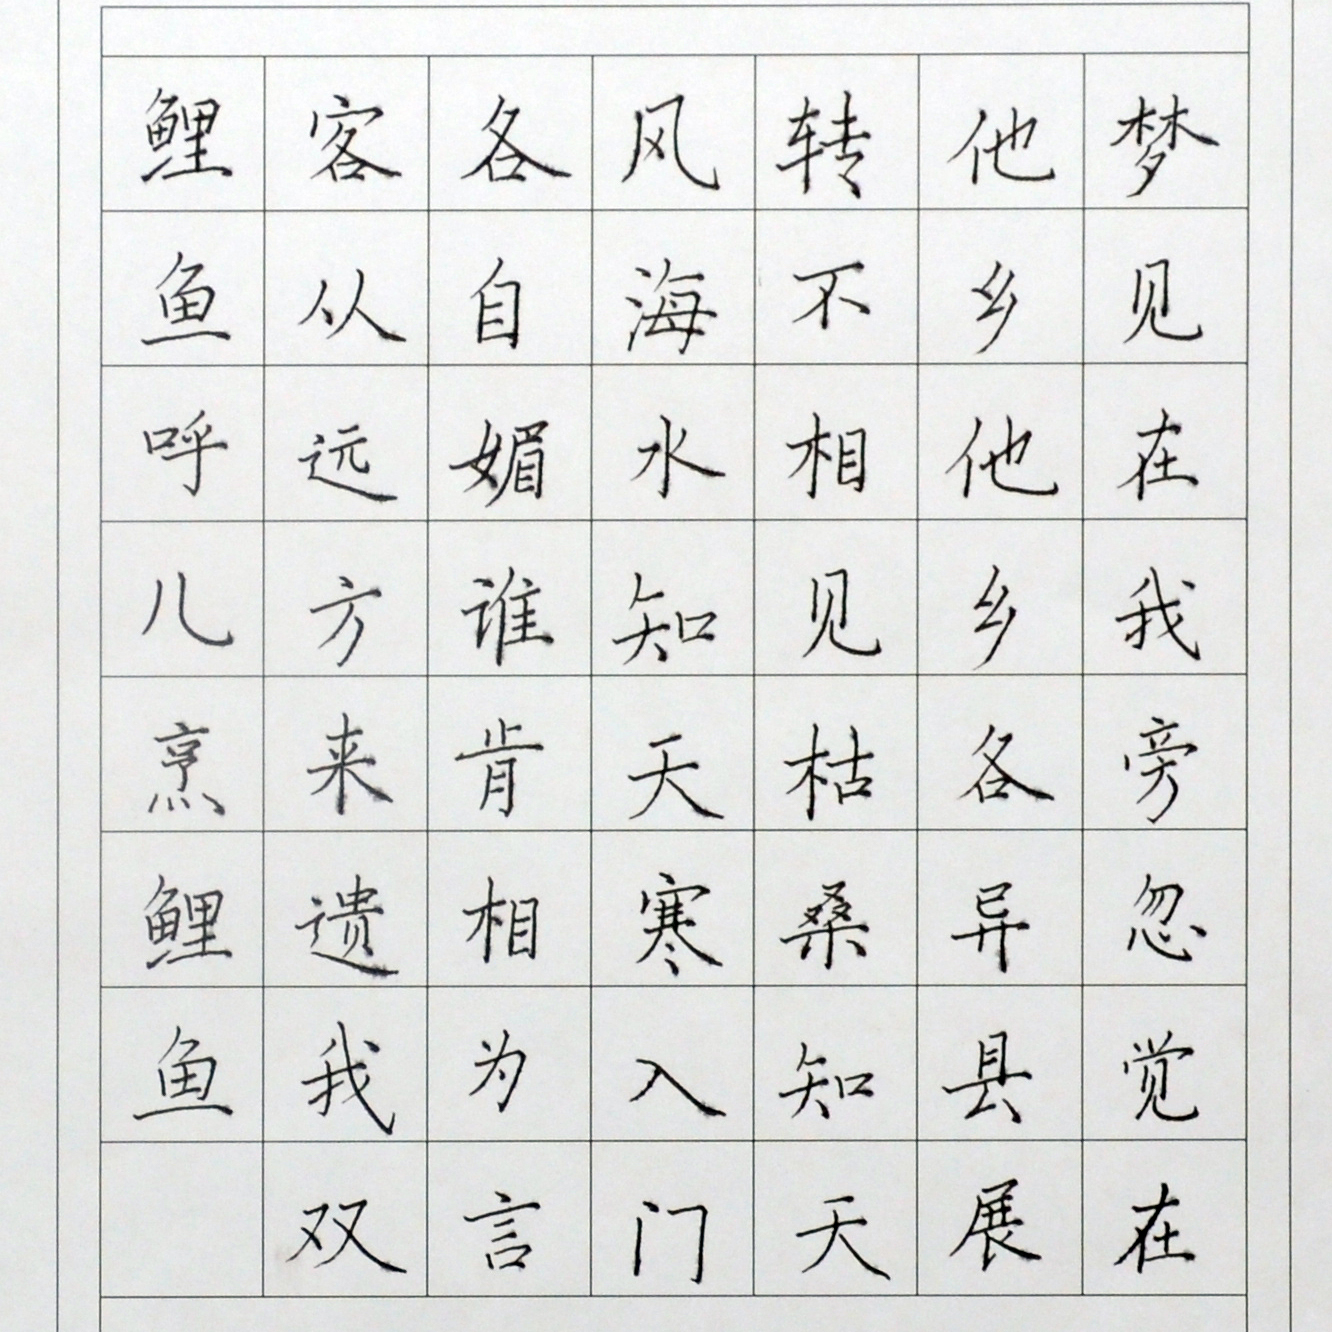 梦见在我旁忽觉在
他乡他乡各异县展
转不相见枯桑知天
风海水知天寒入门
各自媚谁肯相为言
客从远方来遗我双
鲤鱼呼儿烹鲤鱼